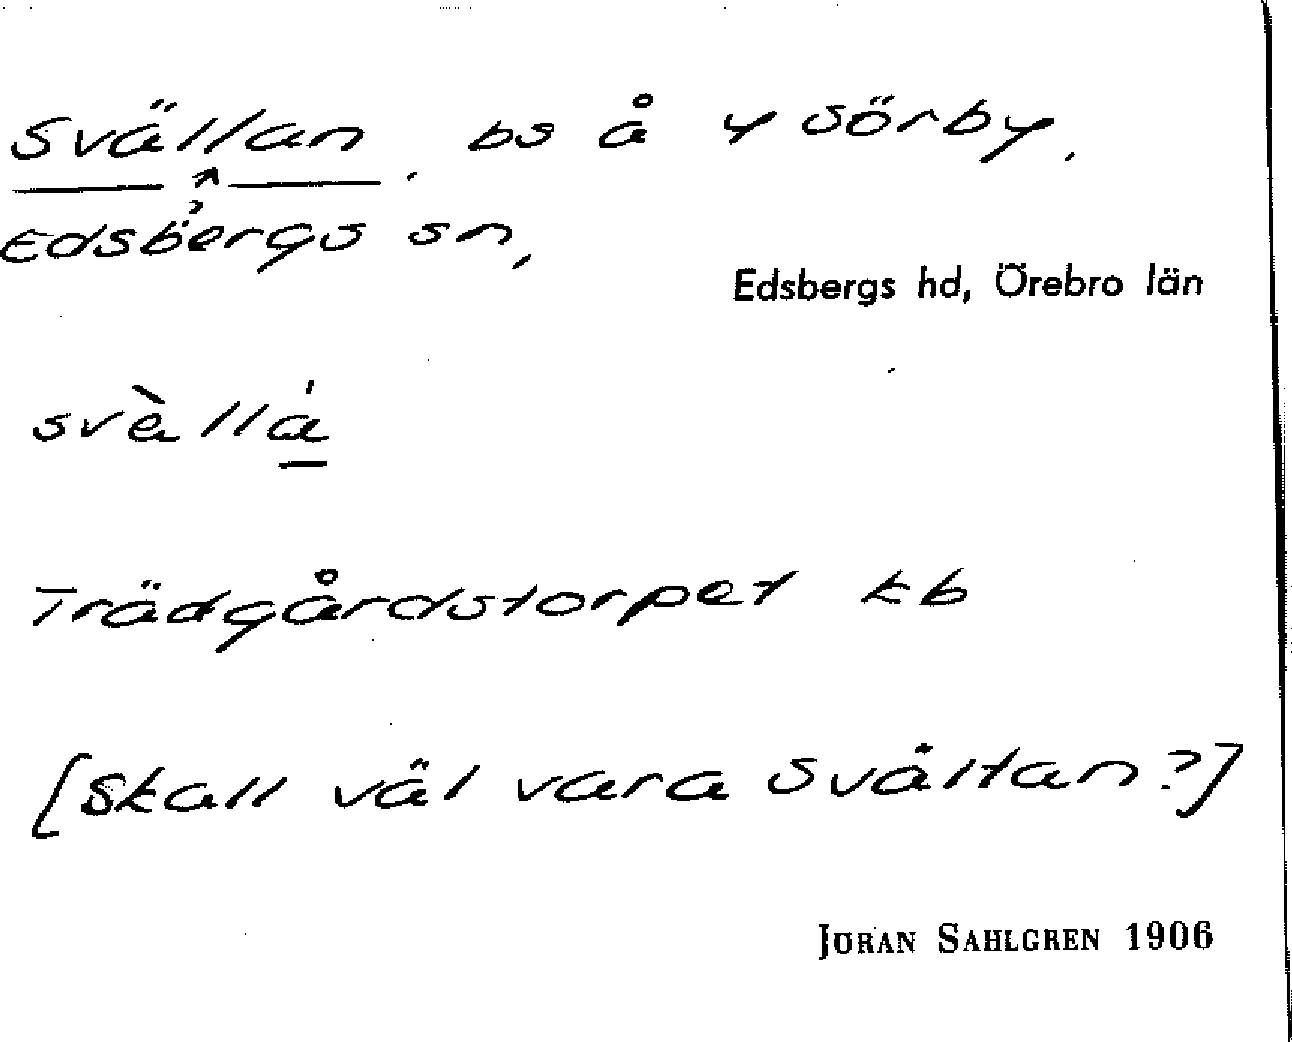 Svällan, bs å Y Sörby,
?
Edsbergs sn,
Edsbergs hd, Örebro län
svèllá
Trädgårdstorpet kb
[Skall väl vara Svåltan?]
JÖRAN SAHLGREN 1906